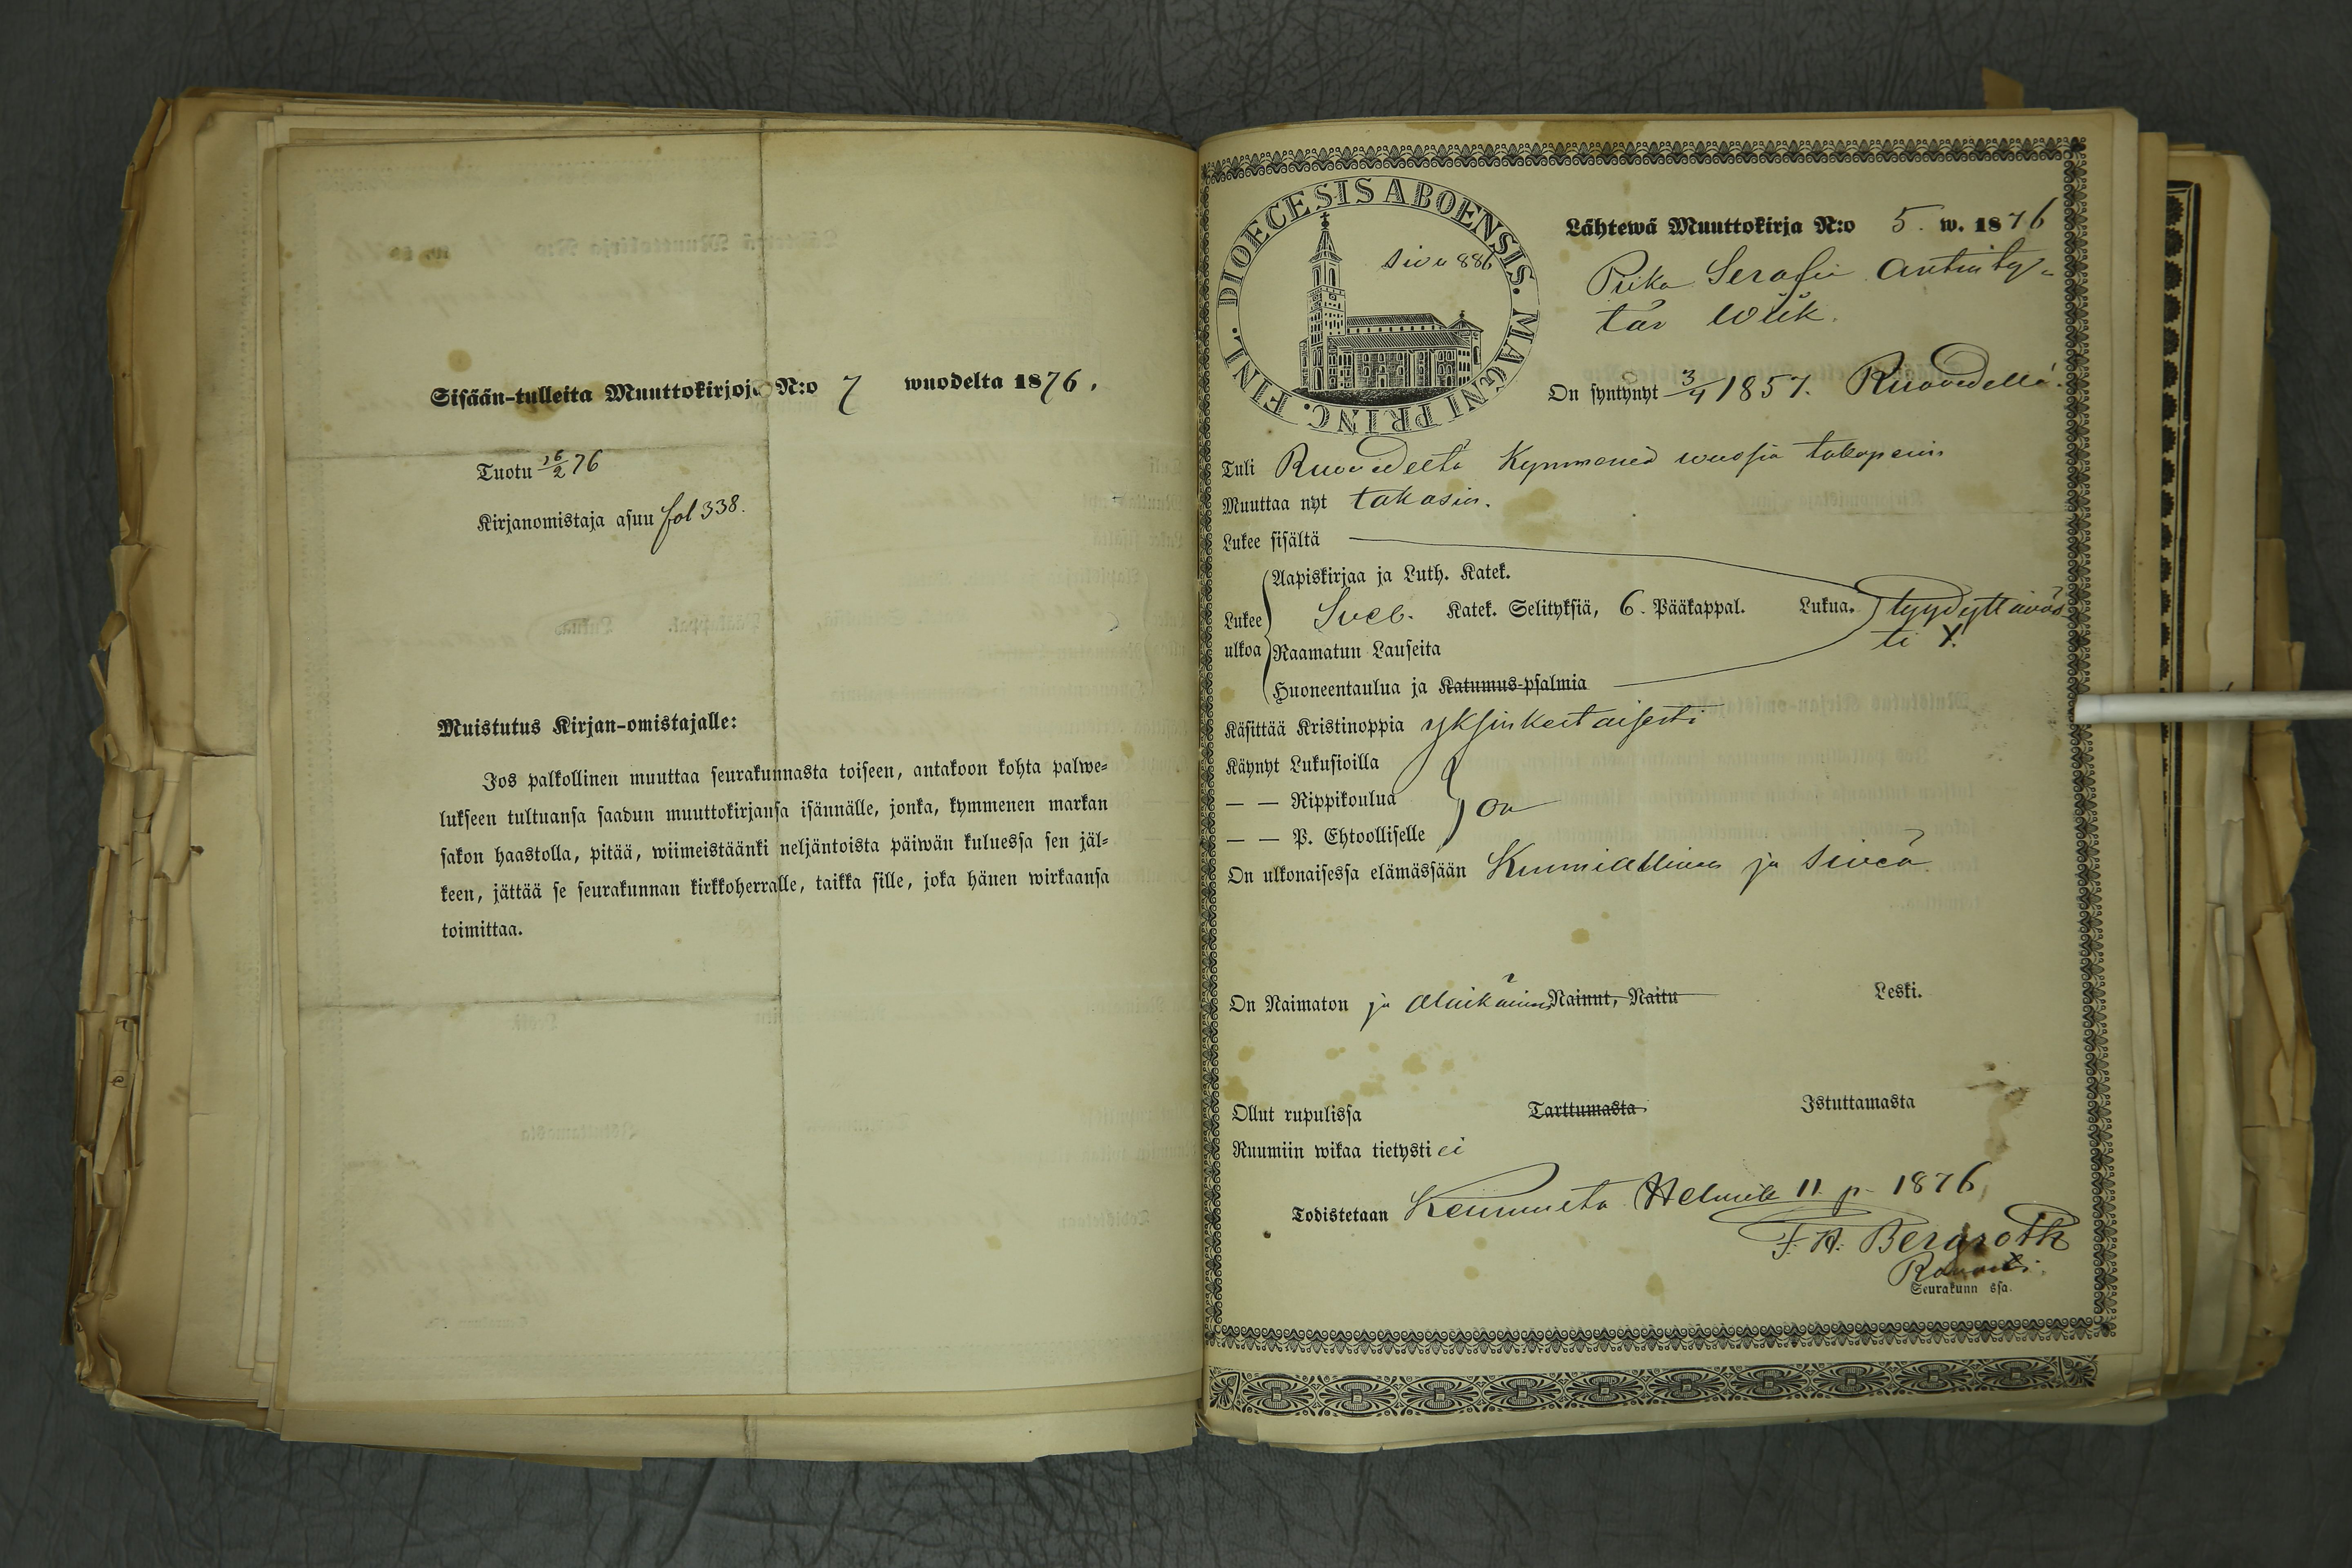 Sisään-tulleita Muuttokirjoja N:o 7 wuodelta 1876.
Tuotu 16/2 76
Kirjanomistaja asuu fol 338.
Muistutus Kirjan-omistajalle:
Jos palkollinen muuttaa seurakunnasta toiseen, antakoon kohta palwe-
lukseen tultuansa saadun muuttokirjansa isännälle, jonka, kymmenen markan
sakon haastolla, pitää, wiimeistäänki neljäntoista päiwän kuluessa sen jäl-
keen, jättää se seurakunnan kirkkoherralle, taikka sille, joka hänen wirkaansa
toimittaa.
DIOECESIS ABOENSIS. MAGNI PRINC. FINL.
Sivu 886
Lähtewä Muuttokirja N:o 5. w. 1876
Piika Serafia Antinty-
tär Wiik.
On syntynyt 3/4 1857. Ruovedellä.
Tuli Ruovedeltä Kymmenen wuosia takaperin
Muuttaa nyt takasin.
Lukee sisältä
Lukee ulkoa
Aapiskirjaa ja Luth. Katek.
Sveb. Katek. Selityksiä, 6. Pääkappal. Lukua.
tyydyttäväs-
ti
Raamatun Lauseita
Huoneentaulua ja Katumus-psalmia
Käsittää Kristinoppia yksinkertaisesti
Käynyt Lukusioilla
— — Rippikoulua on
— — P. Ehtoolliselle
On ulkonaisessa elämässään Kunniallinen ja siveä
On Naimaton ja alaikäinen Nainut, Naitu Leski.
Ollut rupulissa Tarttumasta Istuttamasta
Ruumiin wikaa tietysti ei
Todistetaan Keuruulta Helmik 11 p. 1876
F. H. Bergroth
Rovasti.
Seurakunn ssa.